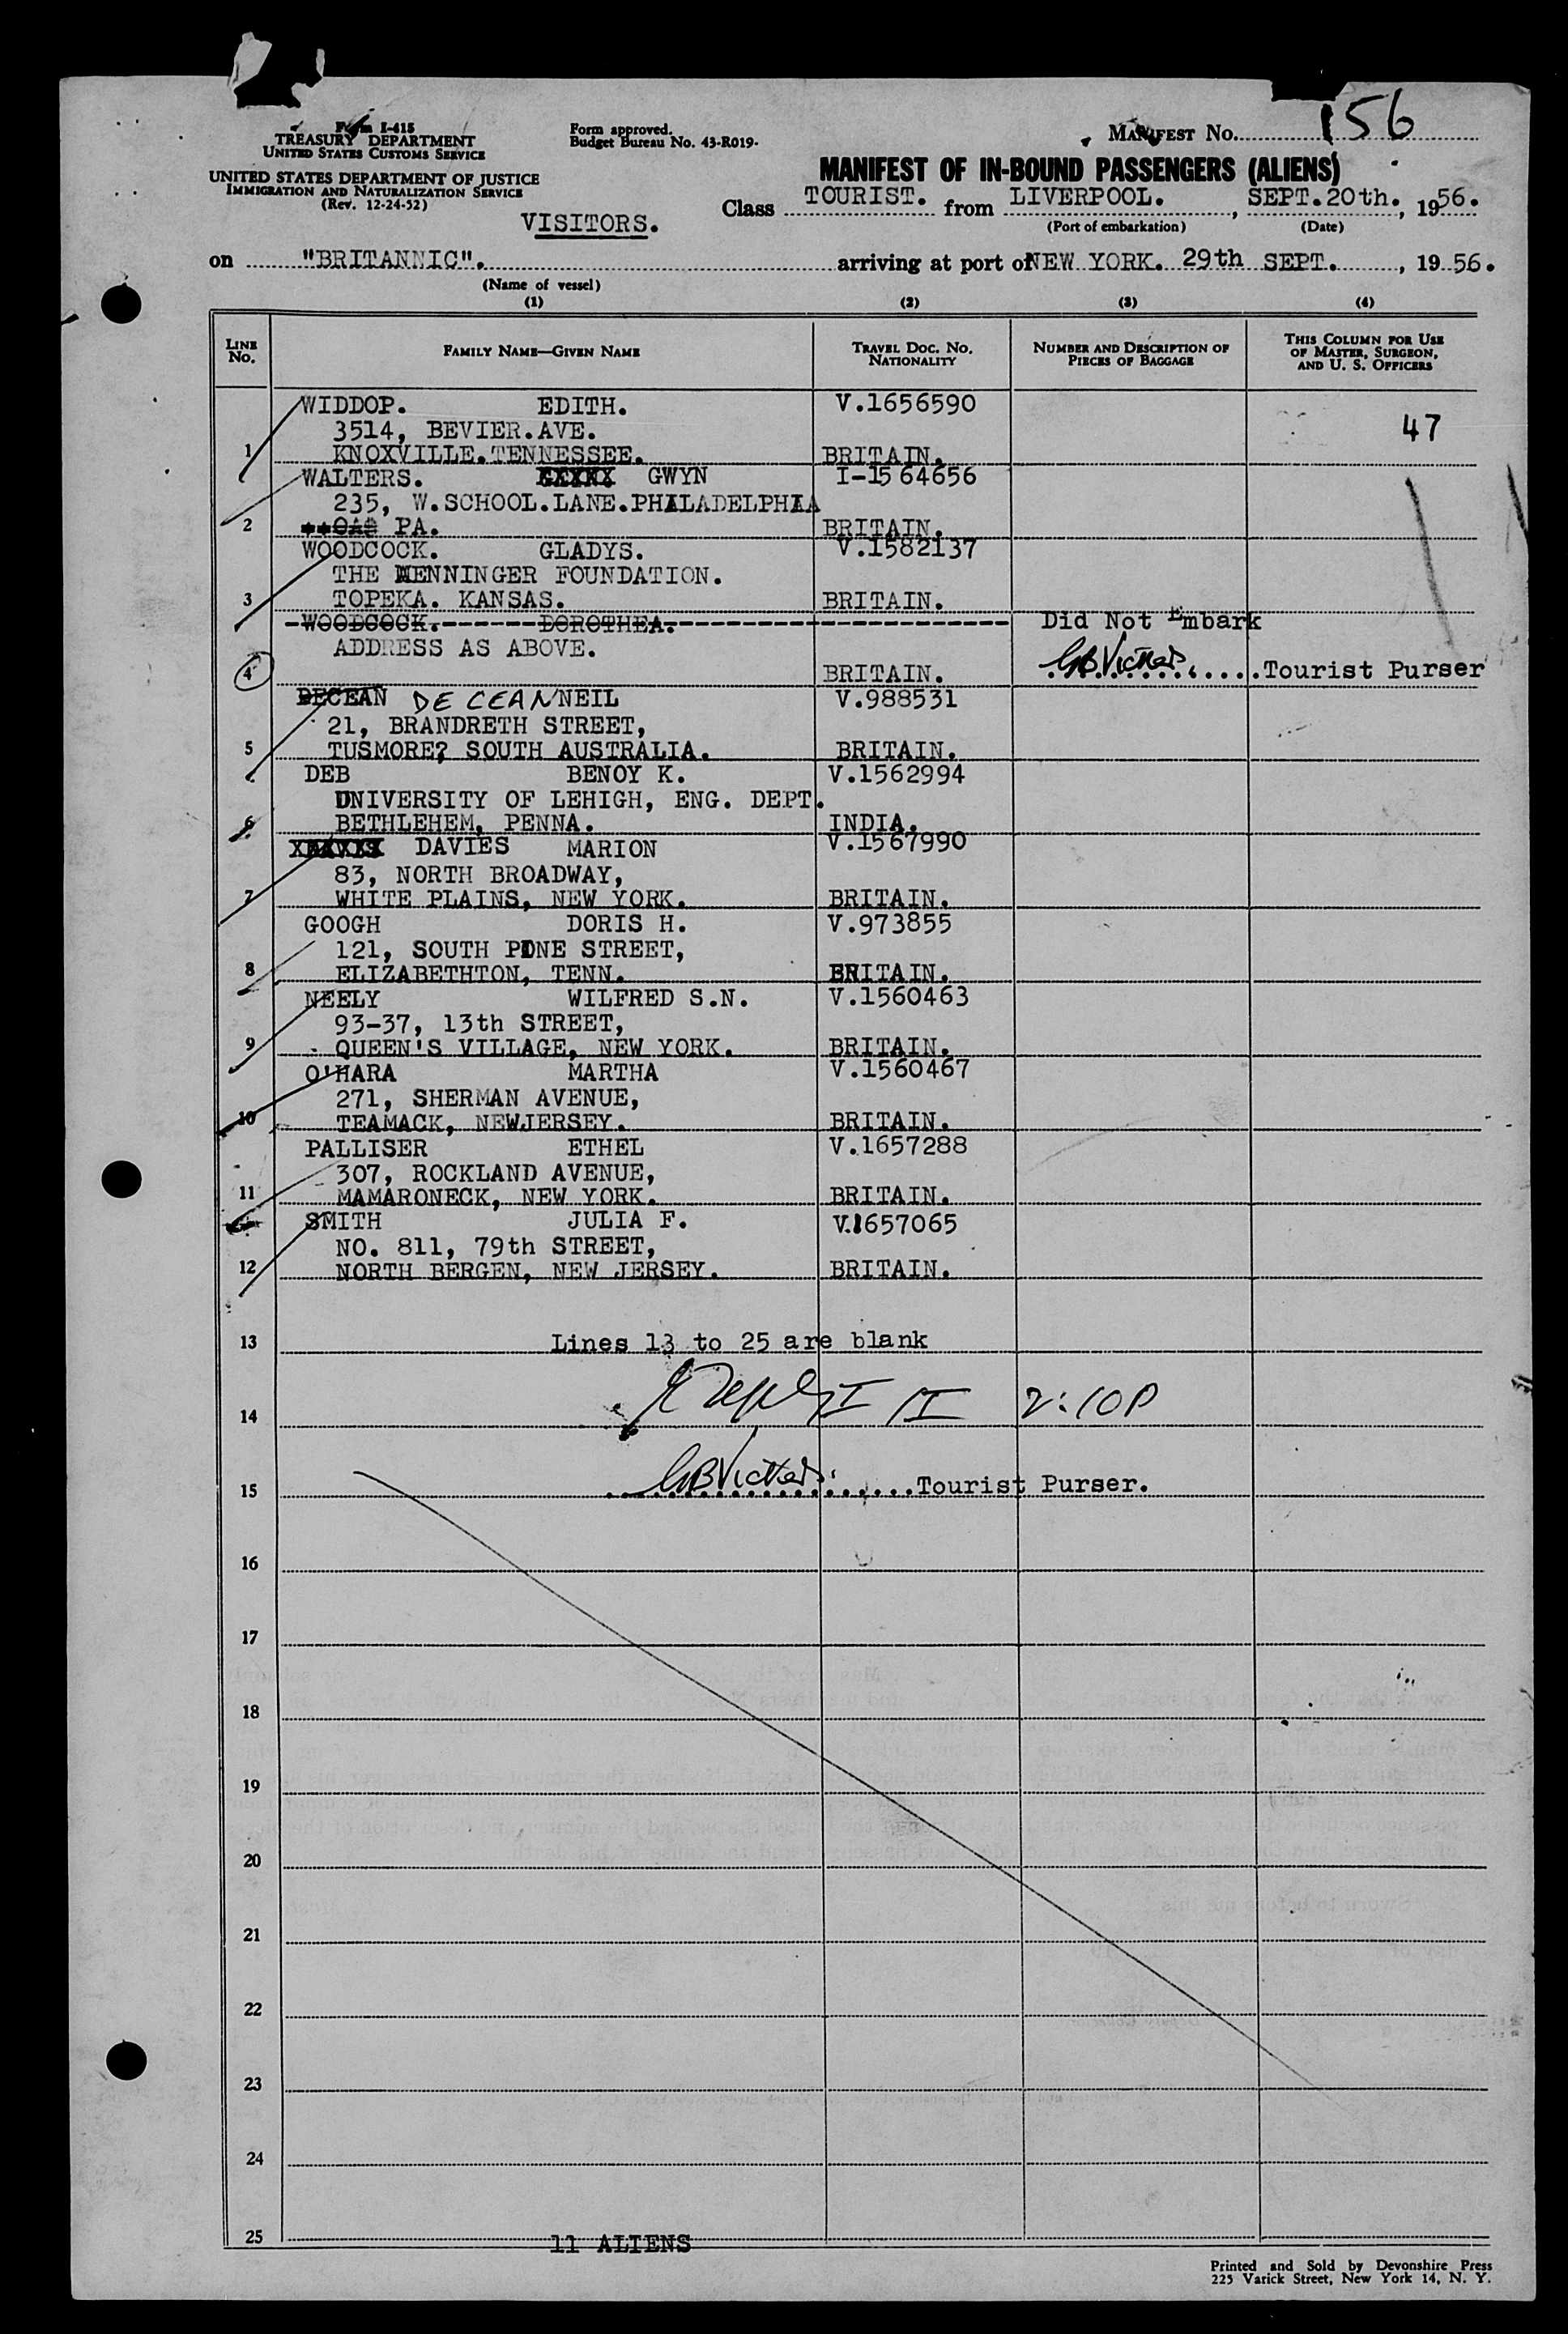 Form I-415
TREASURY DEPARTMENT
UNITED STATES CUSTOMS SERVICE
UNITED STATES DEPARTMENT OF JUSTICE
IMMIGRATION AND NATURALIZATION SERVICE
(Rev. 12-24-52)
Form approved.
Budget Bureau No. 43-R019-
MANIFEST No. 156
MANIFEST OF IN-BOUND PASSENGERS (ALIENS)
VISITORS.
Class TOURIST. from LIVERPOOL. , SEPT.20th. , 1956.
(Port of embarkation) (Date)
on "BRITANNIC". arriving at port of NEW YORK. 29th SEPT. , 1956.
(Name of vessel)
(1) (2) (3) (4)
LINE No. FAMILY NAME—GIVEN NAME TRAVEL DOC. NO. NATIONALITY NUMBER AND DESCRIPTION OF PIECES OF BAGGAGE THIS COLUMN FOR USE OF MASTER, SURGEON, AND U. S. OFFICERS
WIDDOP. EDITH. V.1656590
3514, BEVIER.AVE. 47
1 KNOXVILLE.TENNESSEE. BRITAIN.
WALTERS. GWYN I-1564656
235, W.SCHOOL.LANE.PHILADELPHIA
2 PA. BRITAIN.
WOODCOCK. GLADYS. V.1582137
THE MENNINGER FOUNDATION.
3 TOPEKA. KANSAS. BRITAIN.
WOODCOCK. DOROTHEA. Did Not Embark
ADDRESS AS ABOVE.
4 BRITAIN. Tourist Purser
DECEAN DE CEAN NEIL V.988531
21, BRANDRETH STREET,
5 TUSMORE? SOUTH AUSTRALIA. BRITAIN.
DEB BENOY K. V.1562994
UNIVERSITY OF LEHIGH, ENG. DEPT.
6 BETHLEHEM, PENNA. INDIA.
DAVIES MARION V.1567990
83, NORTH BROADWAY,
7 WHITE PLAINS, NEW YORK. BRITAIN.
GOOGH DORIS H. V.973855
121, SOUTH PINE STREET,
8 ELIZABETHTON, TENN. BRITAIN.
NEELY WILFRED S.N. V.1560463
93-37, 13th STREET,
9 QUEEN'S VILLAGE, NEW YORK. BRITAIN.
O'HARA MARTHA V.1560467
271, SHERMAN AVENUE,
10 TEAMACK, NEWJERSEY. BRITAIN.
PALLISER ETHEL V.1657288
307, ROCKLAND AVENUE,
11 MAMARONECK, NEW YORK. BRITAIN.
SMITH JULIA F. V.1657065
NO. 811, 79th STREET,
12 NORTH BERGEN, NEW JERSEY. BRITAIN.
13 Lines 13 to 25 are blank
14 2:10P
15 Tourist Purser.
16
17
18
19
20
21
22
23
24
25 11 ALIENS
Printed and Sold by Devonshire Press
225 Varick Street, New York 14, N. Y.